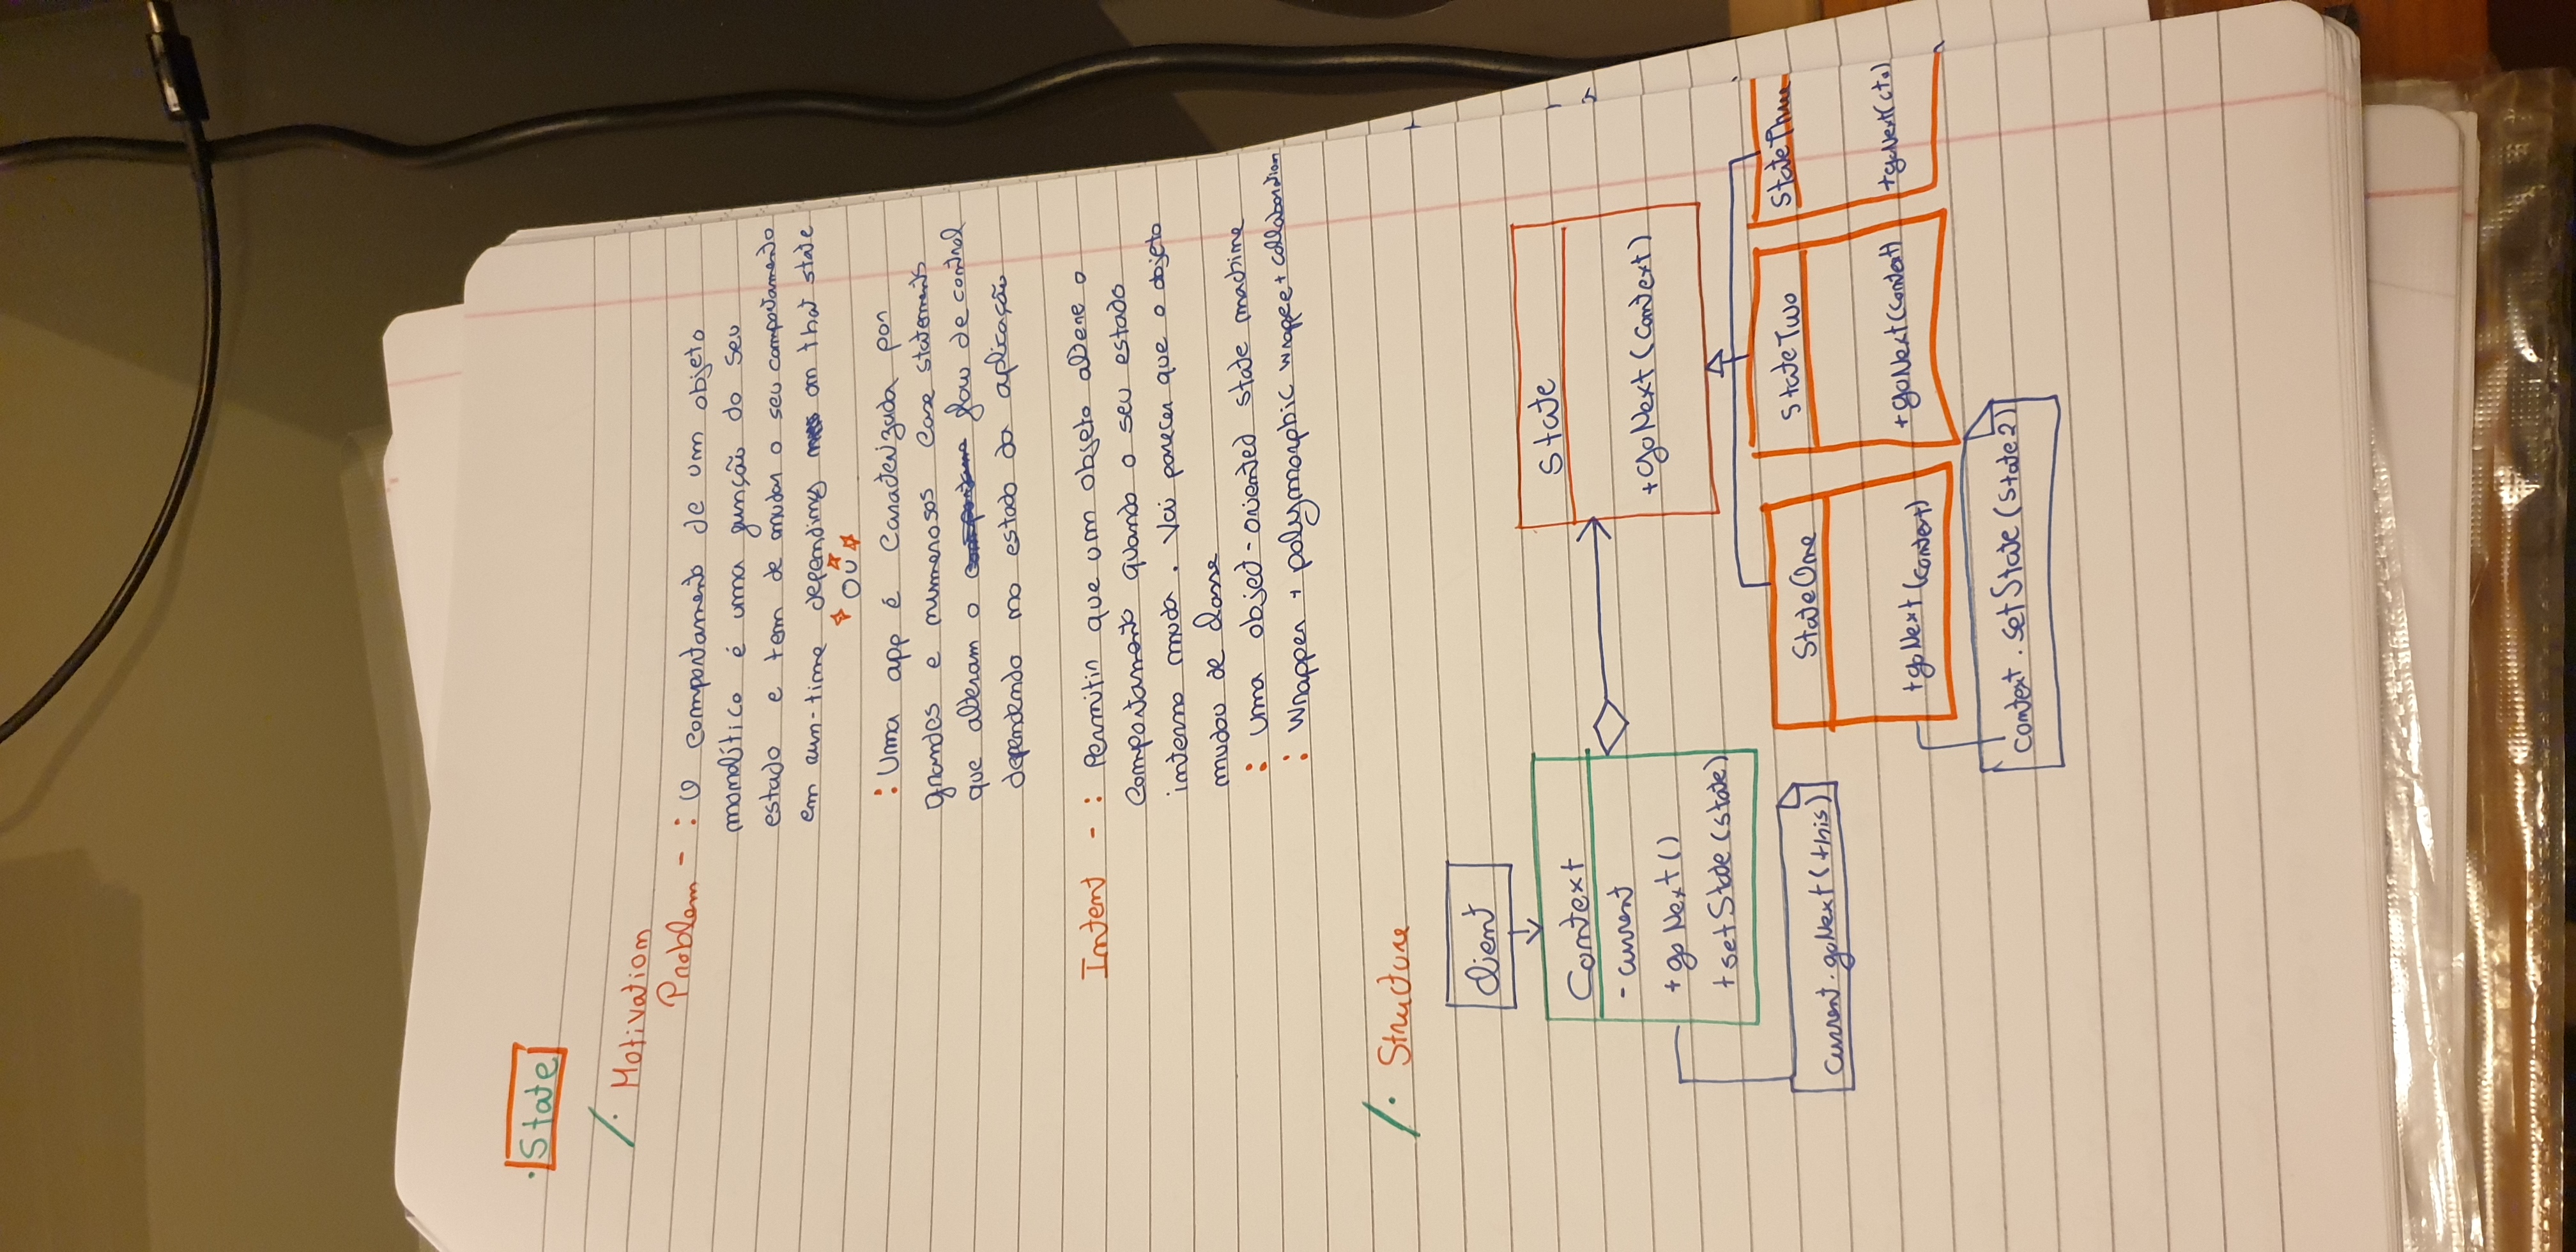 · State
/· Motivation
Problem - : O comportamento de um objeto
monolítico é uma função do seu
estado e tem de mudar o seu comportamento
em run-time depending on that state
OU
: Uma app é caraterizada por
grandes e numerosos case statements
que alteram o flow de control
dependendo no estado da aplicação
Intent - : Permitir que um objeto altere o
comportamento quando o seu estado
interno muda. Vai parecer que o objeto
mudou de classe
: uma object-oriented state machine
: wrapper + polymorphic wrappee + collaboration
/· Structure
Client
Context
- current
+ goNext()
+ setState(state)
current.goNext(this)
State
+goNext(Context)
StateOne
+goNext(context)
StateTwo
+goNext(context)
StateThree
+goNext(
context.setState(State2)